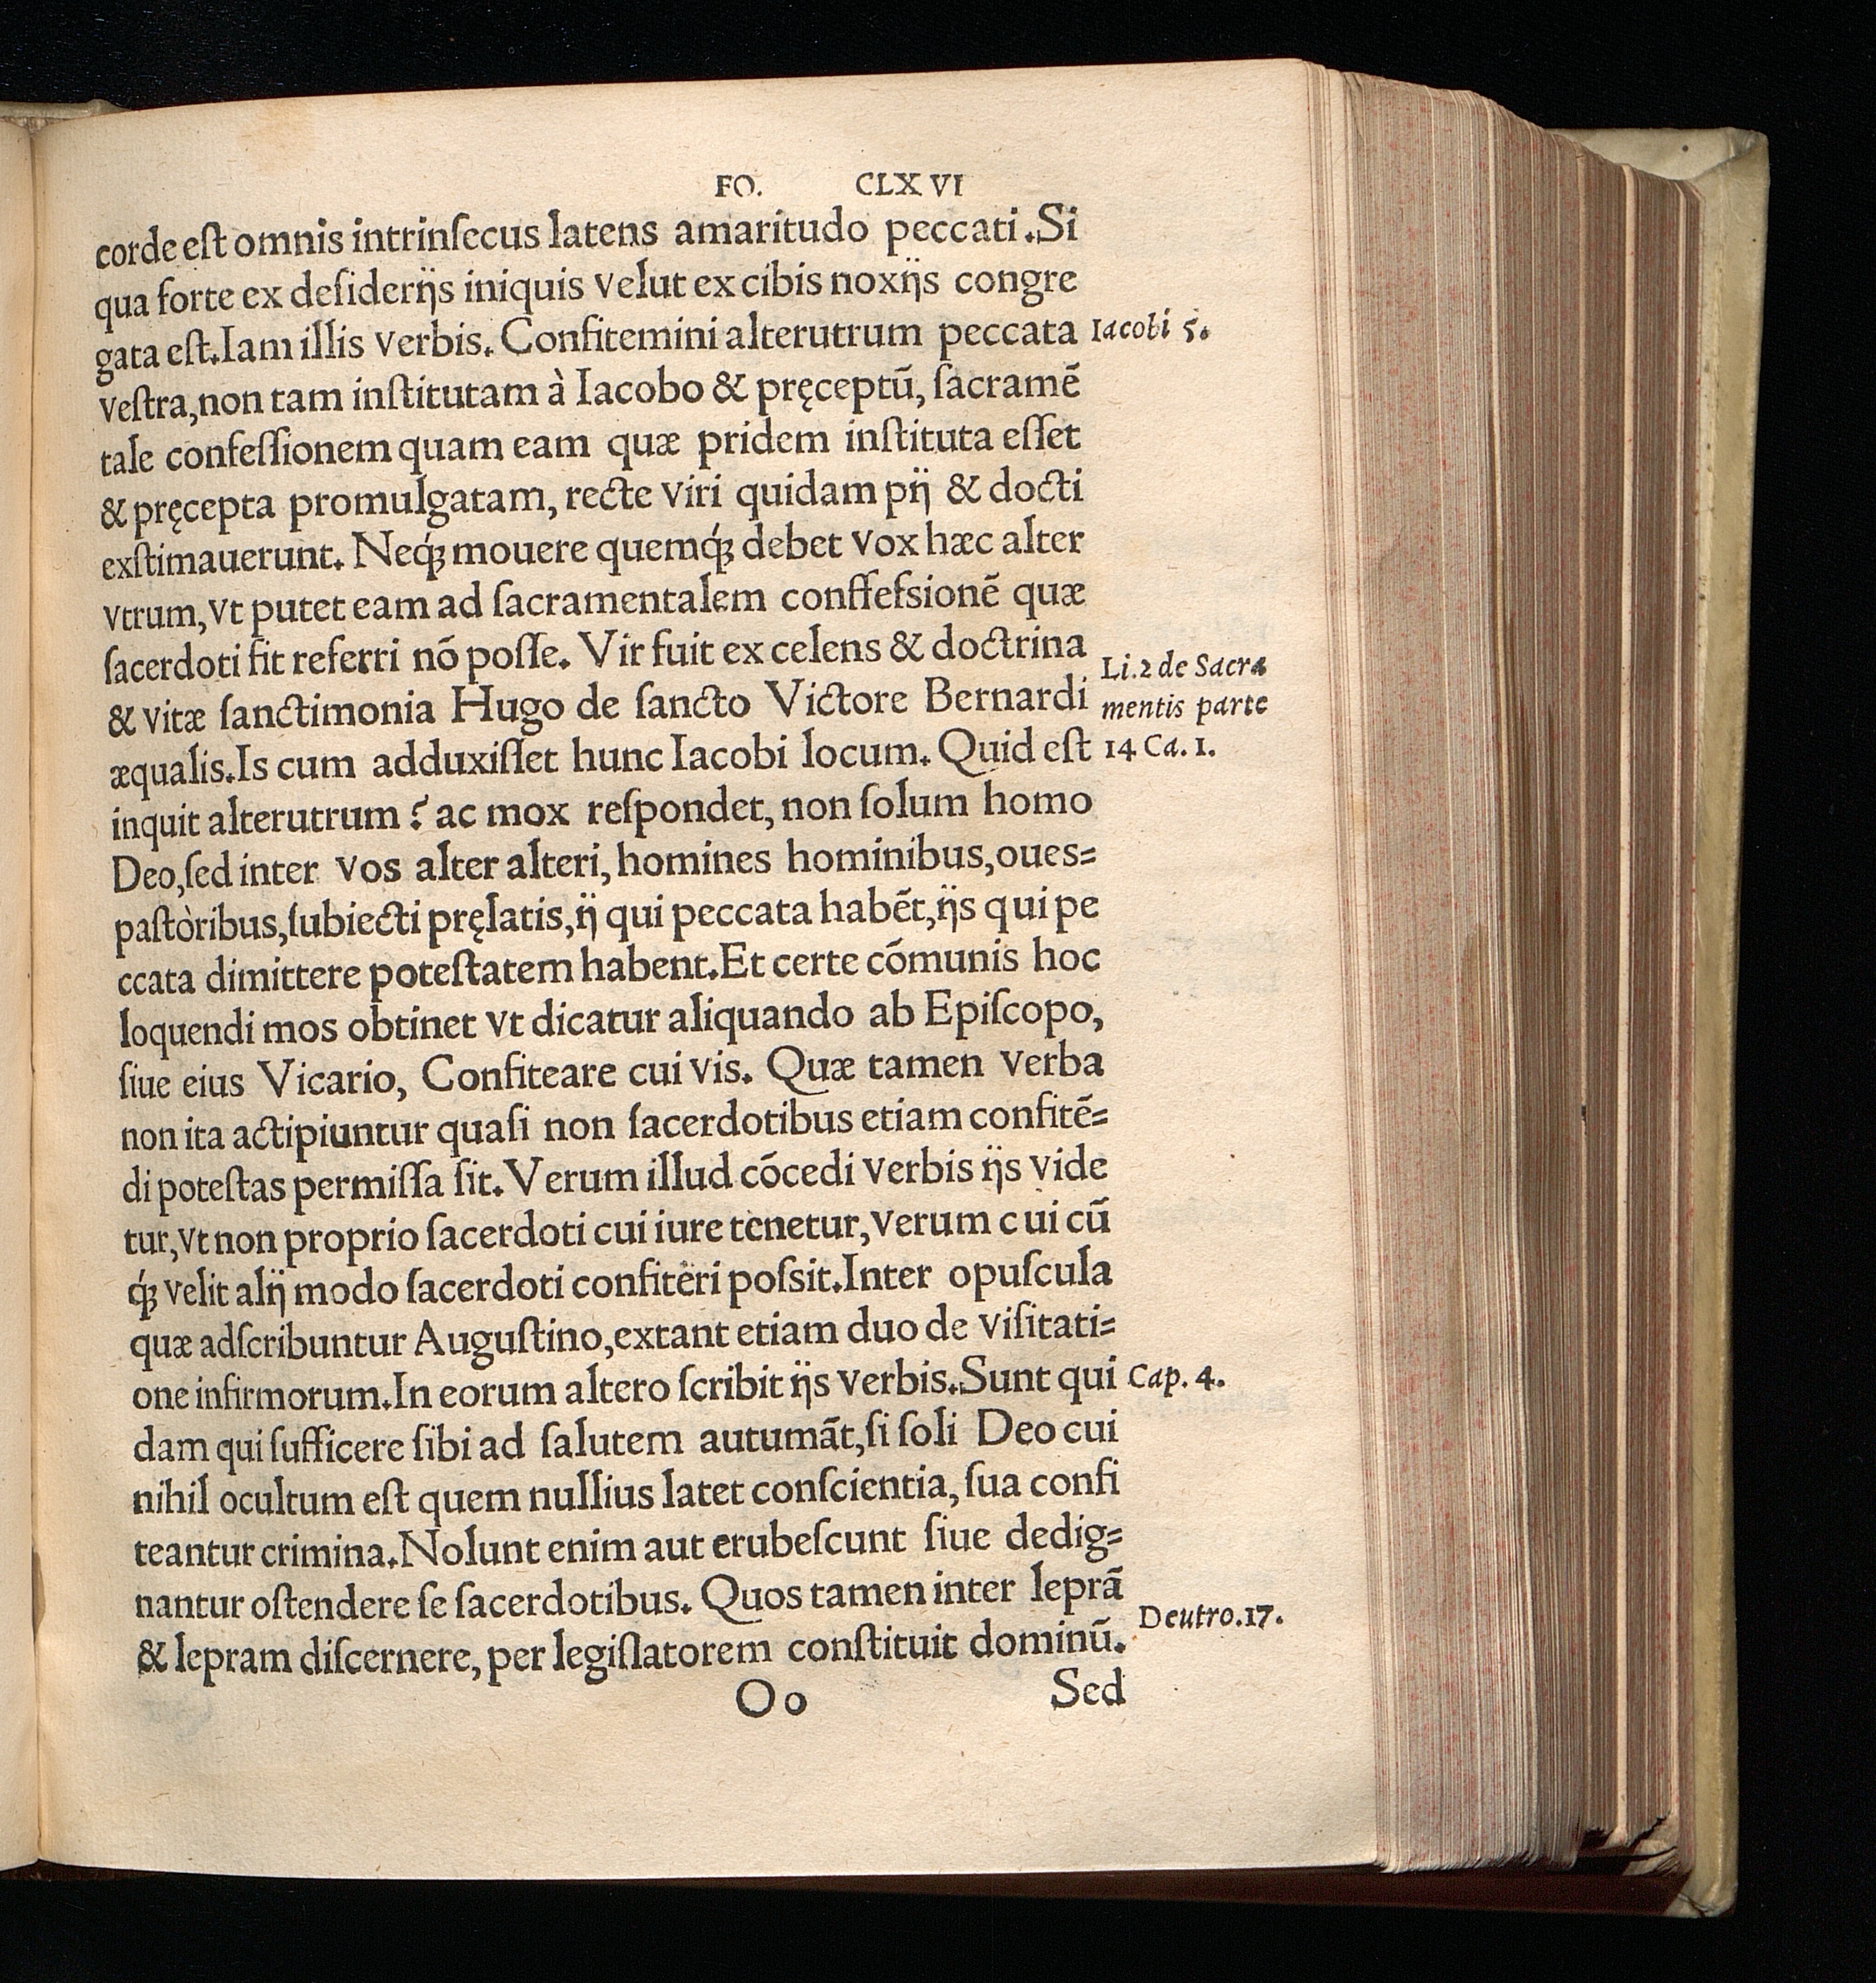 FO. CLXVI
corde eſt omnis intrinſecus latens amaritudo peccati. Si
qua forte ex deſiderijs iniquis velut ex cibis noxijs congre
gata eſt. Iam illis verbis. Confitemini alterutrum peccata
Iacobi 5.
veſtra, non tam inſtitutam à Iacobo & pręceptũ, ſacramẽ
tale confeſſionem quam eam quæ pridem inſtituta eſſet
& pręcepta promulgatam, recte viri quidam pij & docti
exſtimauerunt. Neq́ꝫ mouere quemq́ꝫ debet vox hæc alter
vtrum, vt putet eam ad ſacramentalem conffeſsionẽ quæ
ſacerdoti fit referri nõ poſſe. Vir fuit ex celens & doctrina
& vitæ ſanctimonia Hugo de ſancto Victore Bernardi
Li. 2 de Sacra
mentis parte
æqualis. Is cum adduxiſſet hunc Iacobi locum. Quid eſt
14 Ca. 1.
inquit alterutrum? ac mox reſpondet, non ſolum homo
Deo, ſed inter vos alter alteri, homines hominibus, oues=
paſtòribus, ſubiecti pręlatis, ij qui peccata habẽt, ijs qui pe
ccata dimittere poteſtatem habent. Et certe cõmunis hoc
loquendi mos obtinet vt dicatur aliquando ab Epiſcopo,
ſiue eius Vicario, Confiteare cui vis. Quæ tamen verba
non ita actipiuntur quaſi non ſacerdotibus etiam confitẽ=
di poteſtas permiſſa ſit. Verum illud cõcedi verbis ijs vide
tur, vt non proprio ſacerdoti cui iure tenetur, verum cui cũ
q́ꝫ velit alij modo ſacerdoti confiteri poſsit. Inter opuſcula
quæ adſcribuntur Auguſtino, extant etiam duo de viſitati=
one infirmorum. In eorum altero ſcribit ijs verbis. Sunt qui
Cap. 4.
dam qui ſufficere ſibi ad ſalutem autumãt, ſi ſoli Deo cui
nihil ocultum eſt quem nullius latet conſcientia, ſua confi
teantur crimina. Nolunt enim aut erubeſcunt ſiue dedig=
nantur oſtendere ſe ſacerdotibus. Quos tamen inter leprã
& lepram diſcernere, per legiſlatorem conſtituit dominũ.
Deutro. 17.
Oo Sed